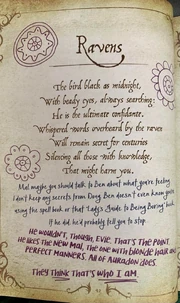 Ravens
The bird black as midnight,
With beady eyes, always searching:
He is the ultimate confidante,
Whispered words overheard by the raven
Will remain secret for centuries
Silencing all those with knowledge,
That might harm you.
Mal maybe you should talk to Ben about what you're feeling
I don't keep any secrets from Doug. Ben doesn't even know you're
using the spell book or that Lady's Guide to Being Boring book.
If he did, he'd probably tell you to stop.
He wouldn't, though, Evie. That's the point.
He likes the new Mal. The one with blonde hair and
perfect manners. All of Auradon does.
They think that's who I am.